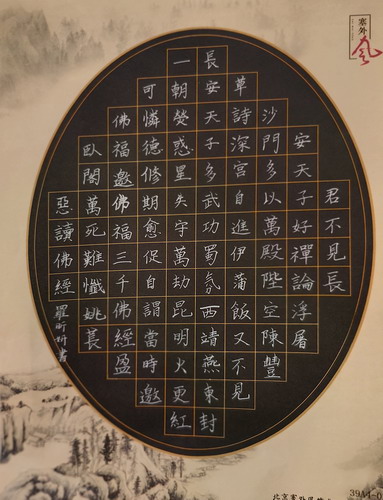 君不見長
安天子好禪論浮屠
沙門多以萬殿陛空陳豐
草詩深宮自進伊蒲飯又不見
長安天子多武功蜀氛西靖燕東封
一朝熒惑星失守萬劫昆明火更紅
可憐德修期愈促自謂當時邀
佛福邀佛福三千佛經盈
臥閣萬死難懺姚萇
惡讀佛經
塞外風